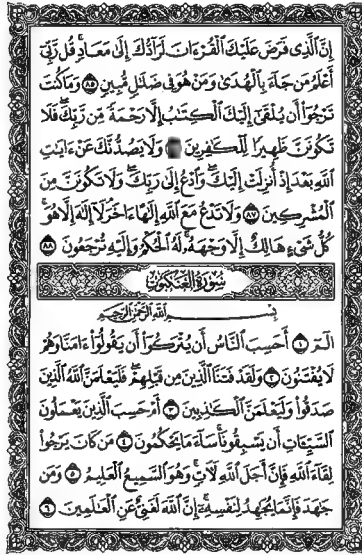 إِنَّ ٱلَّذِى فَرَضَ عَلَيْكَ ٱلْقُرْءَانَ لَرَآدُّكَ إِلَىٰ مَعَادٍ ۚ قُل رَّبِّىٓ
أَعْلَمُ مَن جَآءَ بِٱلْهُدَىٰ وَمَنْ هُوَ فِى ضَلَٰلٍ مُّبِينٍ ٨٥ وَمَا كُنتَ
تَرْجُوٓا۟ أَن يُلْقَىٰٓ إِلَيْكَ ٱلْكِتَٰبُ إِلَّا رَحْمَةً مِّن رَّبِّكَ ۖ فَلَا
تَكُونَنَّ ظَهِيرًا لِّلْكَٰفِرِينَ وَلَا يَصُدُّنَّكَ عَنْ ءَايَٰتِ
ٱللَّهِ بَعْدَ إِذْ أُنزِلَتْ إِلَيْكَ ۖ وَٱدْعُ إِلَىٰ رَبِّكَ ۖ وَلَا تَكُونَنَّ مِنَ
ٱلْمُشْرِكِينَ ٨٧ وَلَا تَدْعُ مَعَ ٱللَّهِ إِلَٰهًا ءَاخَرَ ۘ لَآ إِلَٰهَ إِلَّا هُوَ ۚ
كُلُّ شَىْءٍ هَالِكٌ إِلَّا وَجْهَهُۥ ۚ لَهُ ٱلْحُكْمُ وَإِلَيْهِ تُرْجَعُونَ ٨٨
سُورَةُ ٱلْعَنكَبُوتِ
بِسْمِ ٱللَّهِ ٱلرَّحْمَٰنِ ٱلرَّحِيمِ
الٓمٓ ١ أَحَسِبَ ٱلنَّاسُ أَن يُتْرَكُوٓا۟ أَن يَقُولُوٓا۟ ءَامَنَّا وَهُمْ
لَا يُفْتَنُونَ ٢ وَلَقَدْ فَتَنَّا ٱلَّذِينَ مِن قَبْلِهِمْ ۖ فَلَيَعْلَمَنَّ ٱللَّهُ ٱلَّذِينَ
صَدَقُوا۟ وَلَيَعْلَمَنَّ ٱلْكَٰذِبِينَ ٣ أَمْ حَسِبَ ٱلَّذِينَ يَعْمَلُونَ
ٱلسَّيِّـَٔاتِ أَن يَسْبِقُونَا ۚ سَآءَ مَا يَحْكُمُونَ ٤ مَن كَانَ يَرْجُوا۟
لِقَآءَ ٱللَّهِ فَإِنَّ أَجَلَ ٱللَّهِ لَـَٔاتٍ ۚ وَهُوَ ٱلسَّمِيعُ ٱلْعَلِيمُ ٥ وَمَن
جَٰهَدَ فَإِنَّمَا يُجَٰهِدُ لِنَفْسِهِۦٓ ۚ إِنَّ ٱللَّهَ لَغَنِىٌّ عَنِ ٱلْعَٰلَمِينَ ٦